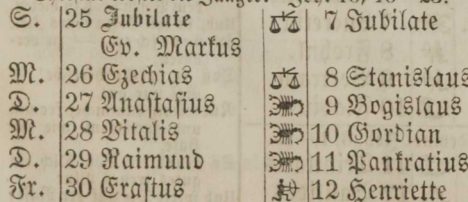 S. 25 Jubilate ♎ 7 Jubilate
Ev. Markus
M. 26 Ezechias ♎ 8 Stanislaus
D. 27 Anastasius ♏ 9 Bogislaus
M. 28 Vitalis ♏ 10 Gordian
D. 29 Raimund ♏ 11 Pankratius
Fr. 30 Erastus ♐ 12 Henriette